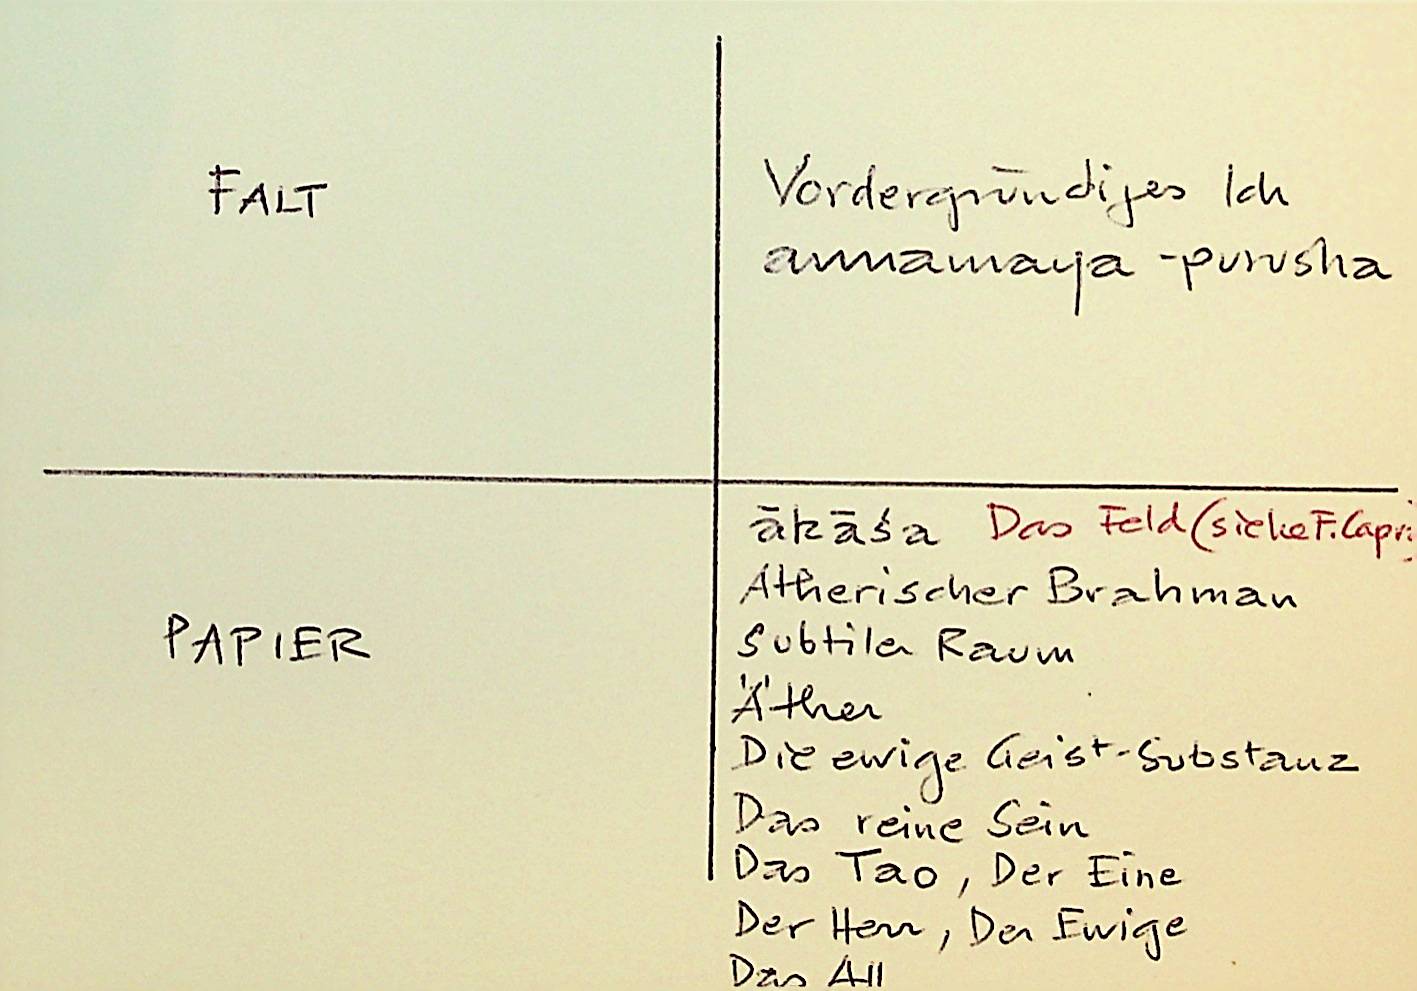 FALT
Vordergründiges Ich
annamaya-purusha
PAPIER
ākāśa Das Feld (siehe F. Capr
Ätherischer Brahman
Subtiler Raum
Äther
Die ewige Geist-Substanz
Das reine Sein
Das Tao, Der Eine
Der Herr, Der Ewige
Das All